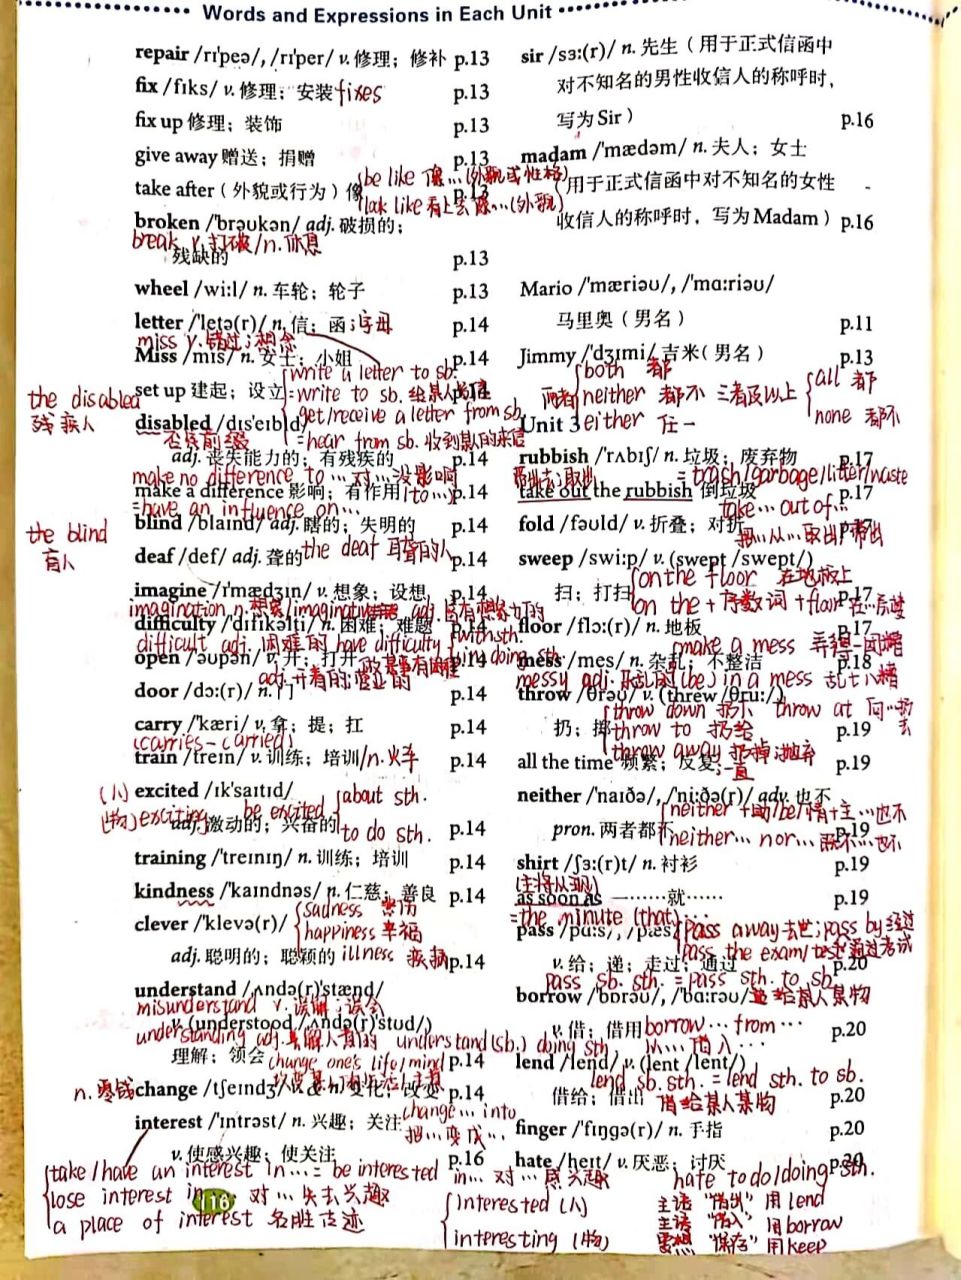 Words and Expressions in Each Unit
repair /rɪˈpeə/, /rɪˈper/ v. 修理；修补 p.13
fix /fɪks/ v. 修理；安装 fixes p.13
fix up 修理；装饰 p.13
give away 赠送；捐赠 p.13
be like 像…(外貌或性格)
take after（外貌或行为）像 p.13
look like 看上去像…(外貌)
broken /ˈbrəʊkən/ adj. 破损的；
break v. 打破/n. 休息
残缺的 p.13
wheel /wiːl/ n. 车轮；轮子 p.13
letter /ˈletə(r)/ n. 信；函；字母 p.14
miss v. 错过；想念
Miss /mɪs/ n. 女士；小姐 p.14
write a letter to sb.
set up 建起；设立 p.14
=write to sb.
the disabled
残疾人
get/receive a letter from sb.
disabled /dɪsˈeɪbld/
否定前缀
=hear from sb. 收到某人的来信
adj. 丧失能力的；有残疾的 p.14
make no difference to … 对…没影响
make a difference 影响；有作用 (to…) p.14
=have an influence on…
the blind
盲人
blind /blaɪnd/ adj. 瞎的；失明的 p.14
deaf /def/ adj. 聋的 the deaf 耳聋的人 p.14
imagine /ɪˈmædʒɪn/ v. 想象；设想 p.14
imagination n. 想象/imaginative adj. 富有想象力的
difficulty /ˈdɪfɪkəlti/ n. 困难；难题 p.14
difficult adj. 困难的 have difficulty with sth.
(in) doing sth.
open /ˈəʊpən/ v. 开；打开 p.14
做某事有困难
adj. 开着的；营业的
door /dɔː(r)/ n. 门 p.14
carry /ˈkæri/ v. 拿；提；扛 p.14
(carries-carried)
train /treɪn/ v. 训练；培训/n. 火车 p.14
(人) excited /ɪkˈsaɪtɪd/
about sth.
(物) exciting be excited
adj. 激动的；兴奋的 p.14
to do sth.
training /ˈtreɪnɪŋ/ n. 训练；培训 p.14
kindness /ˈkaɪndnəs/ n. 仁慈；善良 p.14
sadness 悲伤
clever /ˈklevə(r)/
happiness 幸福
adj. 聪明的；聪颖的 illness 疾病 p.14
understand /ˌʌndə(r)ˈstænd/
misunderstand v. 误解；误会
v. (understood /ˌʌndə(r)ˈstʊd/)
understanding adj. 善解人意的 understand (sb.) doing sth
理解；领会 p.14
change one's life/mind
n. 零钱 change /tʃeɪndʒ/ v. & n. 变化；改变 p.14
change … into
把…变成…
interest /ˈɪntrəst/ n. 兴趣；关注
v. 使感兴趣；使关注 p.16
take/have an interest in… = be interested in… 对…感兴趣
lose interest in… 对…失去兴趣
a place of interest 名胜古迹
interested (人)
interesting (物)
116
sir /sɜː(r)/ n. 先生（用于正式信函中
对不知名的男性收信人的称呼时，
写为 Sir） p.16
madam /ˈmædəm/ n. 夫人；女士
（用于正式信函中对不知名的女性
收信人的称呼时，写为 Madam） p.16
Mario /ˈmæriəʊ/, /ˈmɑːriəʊ/
马里奥（男名） p.11
Jimmy /ˈdʒɪmi/ 吉米（男名） p.13
both 都
两者 neither 都不 三者及以上 all 都
none 都不
either 任一
Unit 3
rubbish /ˈrʌbɪʃ/ n. 垃圾；废弃物 p.17
= trash/garbage/litter/waste
take out the rubbish 倒垃圾 p.17
take … out of…
把…从…取出/带出
fold /fəʊld/ v. 折叠；对折 p.17
sweep /swiːp/ v. (swept /swept/)
on the floor 在地板上
扫；打扫 p.17
on the + 序数词 + floor 在…层楼
floor /flɔː(r)/ n. 地板 p.17
make a mess 弄得一团糟
mess /mes/ n. 杂乱；不整洁 p.18
messy adj. 杂乱的 (be) in a mess 乱七八糟
throw /θrəʊ/ v. (threw /θruː/)
throw down 扔下 throw at 向…扔去
扔；掷 throw to 扔给 p.19
throw away 扔掉；抛弃
all the time 频繁；反复；一直 p.19
neither /ˈnaɪðə/, /ˈniːðə(r)/ adv. 也不
neither +助/be/情+主…也不
pron. 两者都不 p.19
neither… nor…
shirt /ʃɜː(r)t/ n. 衬衫 p.19
(主将从现)
as soon as 一……就…… p.19
=the minute (that)…
pass /pɑːs/, /pæs/
pass away 去世；pass by 经过
pass the exam/test 通过考试
v. 给；递；走过；通过 p.20
pass sb. sth. = pass sth. to sb.
borrow /ˈbɒrəʊ/, /ˈbɑːrəʊ/
递给某人某物
v. 借；借用 borrow … from … p.20
从…借入…
lend /lend/ v. (lent /lent/)
lend sb. sth. = lend sth. to sb.
借给；借出 p.20
借给某人某物
finger /ˈfɪŋɡə(r)/ n. 手指 p.20
hate /heɪt/ v. 厌恶；讨厌 p.20
hate to do/doing sth.
主语“借出” 用 lend
主语“借入” 用 borrow
要想“保存” 用 keep